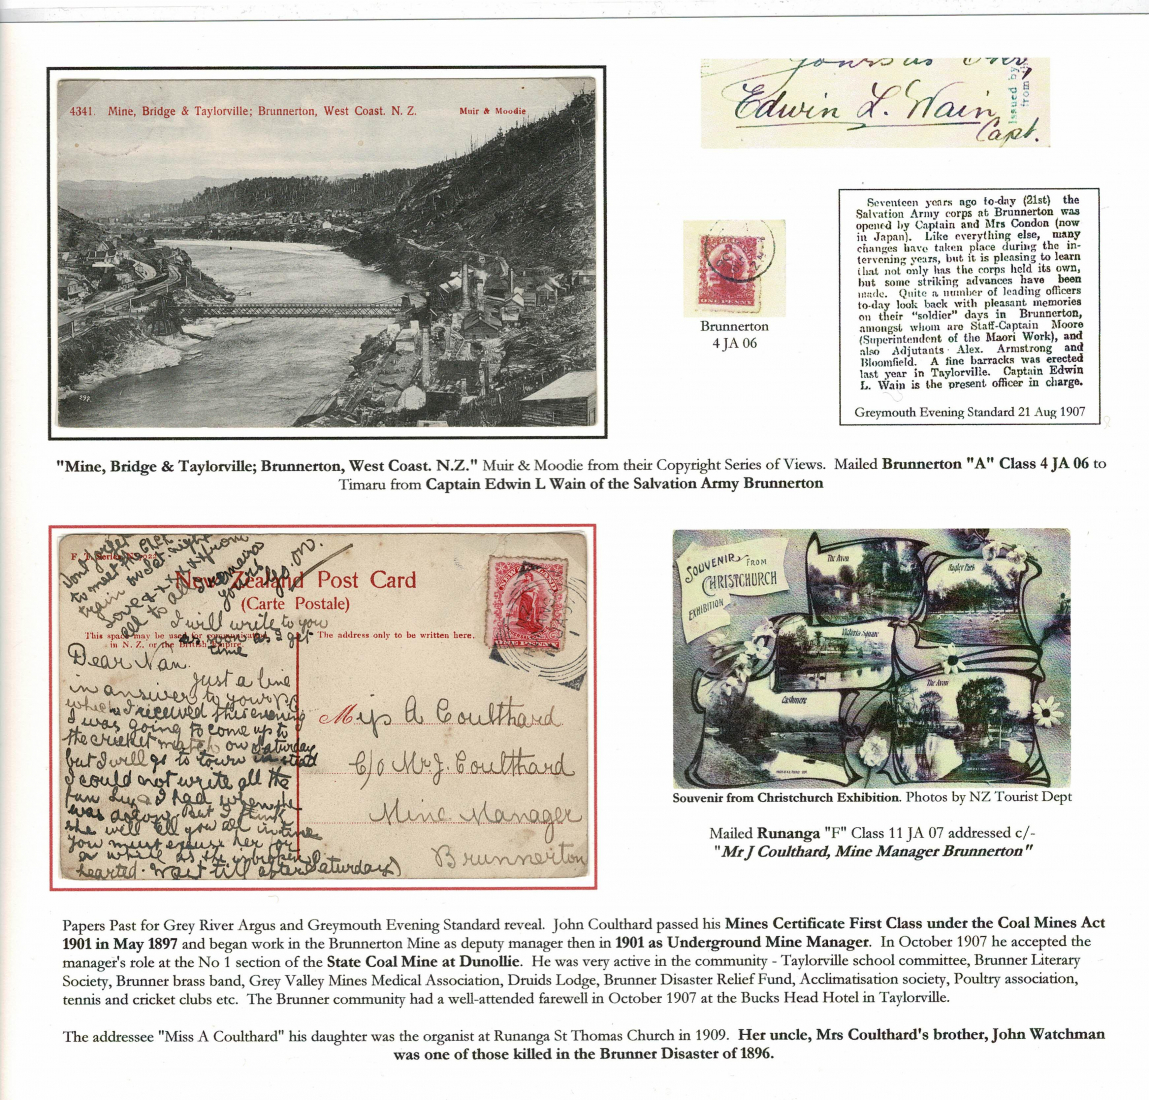 4341. Mine, Bridge & Taylorville; Brunnerton, West Coast. N. Z. Muir & Moodie
299
Edwin L. Wain
Capt.
Issued by
from
Brunnerton
4 JA 06
Seventeen years ago to-day (21st) the
Salvation Army corps at Brunnerton was
opened by Captain and Mrs Condon (now
in Japan). Like everything else, many
changes have taken place during the in-
tervening years, but it is pleasing to learn
that not only has the corps held its own,
but some striking advances have been
made. Quite a number of leading officers
to-day look back with pleasant memories
on their "soldier" days in Brunnerton,
amongst whom are Staff-Captain Moore
(Superintendent of the Maori Work), and
also Adjutants Alex. Armstrong and
Bloomfield. A fine barracks was erected
last year in Taylorville. Captain Edwin
L. Wain is the present officer in charge.
Greymouth Evening Standard 21 Aug 1907
"Mine, Bridge & Taylorville; Brunnerton, West Coast. N.Z." Muir & Moodie from their Copyright Series of Views. Mailed Brunnerton "A" Class 4 JA 06 to
Timaru from Captain Edwin L Wain of the Salvation Army Brunnerton
Dont forget
to meet the
train
night
love
from
all to all
New Zealand Post Card
(Carte Postale)
This space may be used for communication
in N. Z. or the British Empire.
The address only to be written here.
I will write to you
as soon as I get
time
ONE PENNY
Dear Nan.
Just a line
in answer to your P.C
which I received this evening
I was going to come up to
the cricket match on Saturday
but I will go to town instead
I could not write all the
fun I had when he
was down. But I think
she will tell you all in time
you must excuse her for
a while as she is broken
hearted. Wait till after Saturday
Miss A Coulthard
C/o Mr J. Coulthard
Mine Manager
Brunnerton
SOUVENIR FROM
CHRISTCHURCH
EXHIBITION
The Avon
Hagley Park
Victoria Square
Cashmere
The Avon
Souvenir from Christchurch Exhibition. Photos by NZ Tourist Dept
Mailed Runanga "F" Class 11 JA 07 addressed c/-
"Mr J Coulthard, Mine Manager Brunnerton"
Papers Past for Grey River Argus and Greymouth Evening Standard reveal. John Coulthard passed his Mines Certificate First Class under the Coal Mines Act
1901 in May 1897 and began work in the Brunnerton Mine as deputy manager then in 1901 as Underground Mine Manager. In October 1907 he accepted the
manager's role at the No 1 section of the State Coal Mine at Dunollie. He was very active in the community - Taylorville school committee, Brunner Literary
Society, Brunner brass band, Grey Valley Mines Medical Association, Druids Lodge, Brunner Disaster Relief Fund, Acclimatisation society, Poultry association,
tennis and cricket clubs etc. The Brunner community had a well-attended farewell in October 1907 at the Bucks Head Hotel in Taylorville.
The addressee "Miss A Coulthard" his daughter was the organist at Runanga St Thomas Church in 1909. Her uncle, Mrs Coulthard's brother, John Watchman
was one of those killed in the Brunner Disaster of 1896.